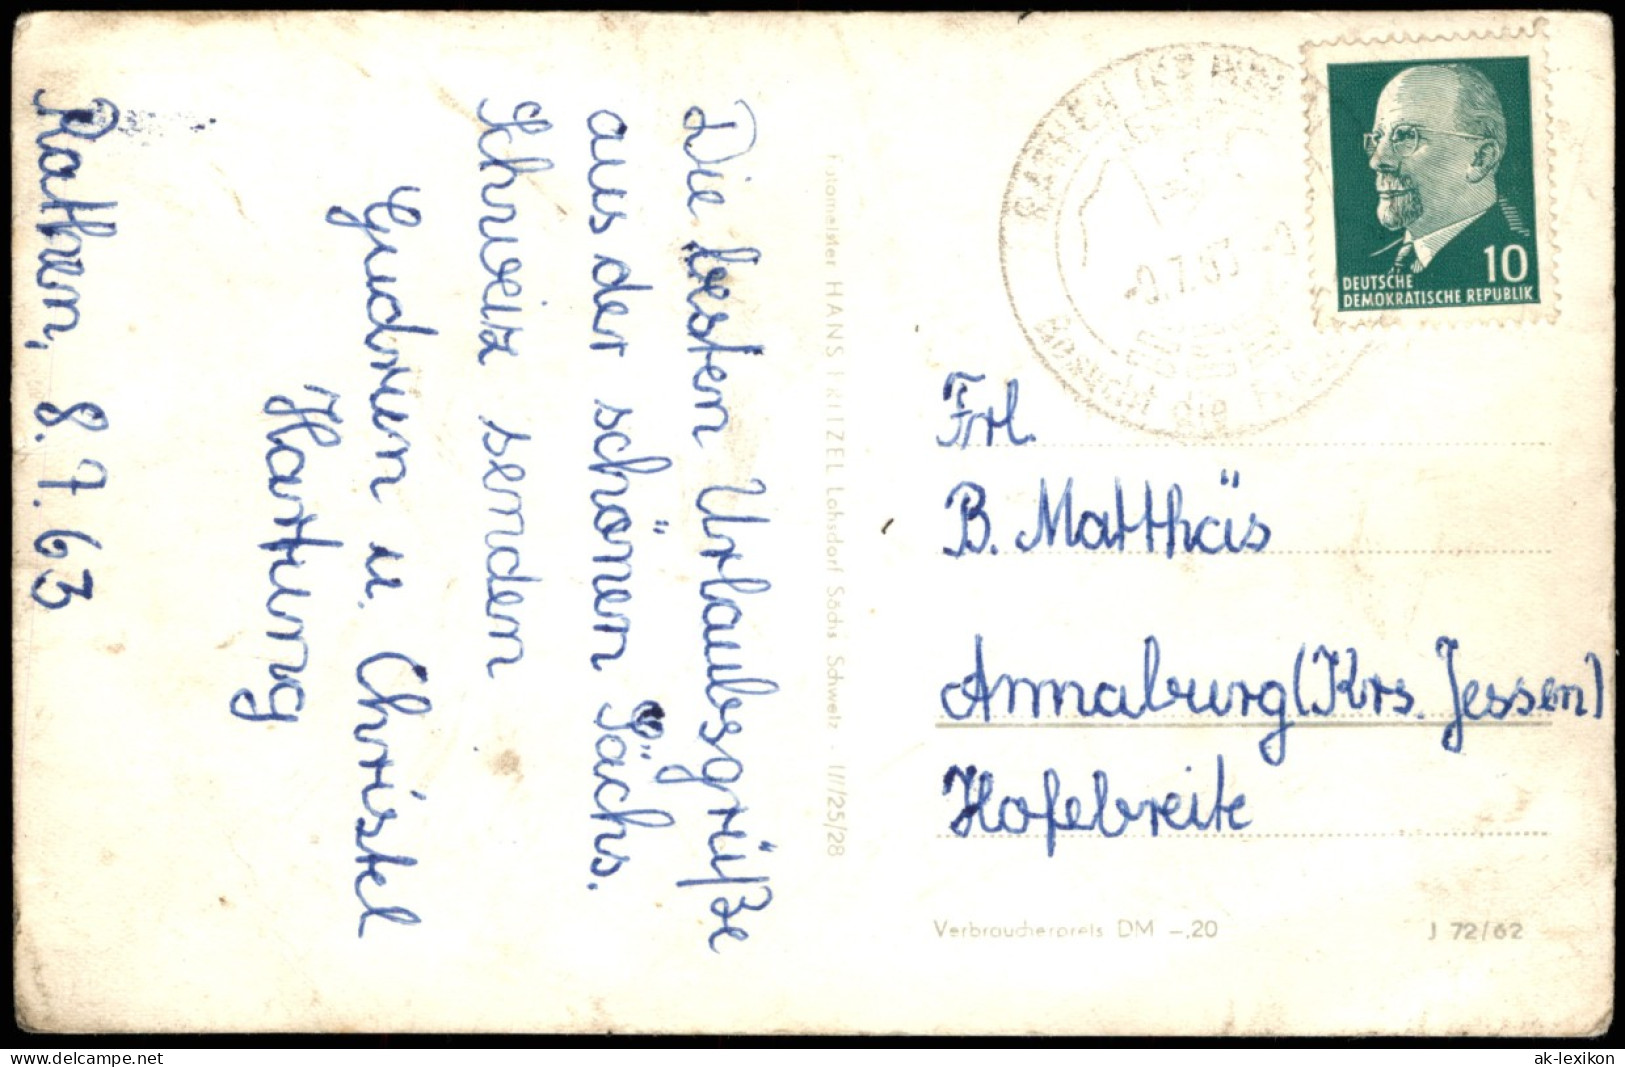 Die besten Urlaubsgrüße
aus der schönen Sächs.
Schweiz senden
Gudrun u. Christel
Hartung
Rathen, 8.7.63
Fotomeister HANS Lohsdorf Sächs Schweiz - III/25/28
RATHEN (KR
Besucht die
DEUTSCHE
DEMOKRATISCHE REPUBLIK
10
Frl.
B. Matthäs
Annaburg (Krs. Jessen)
Hofebreite
Verbraucherpreis DM -.20
J 72/62
ak-lexikon